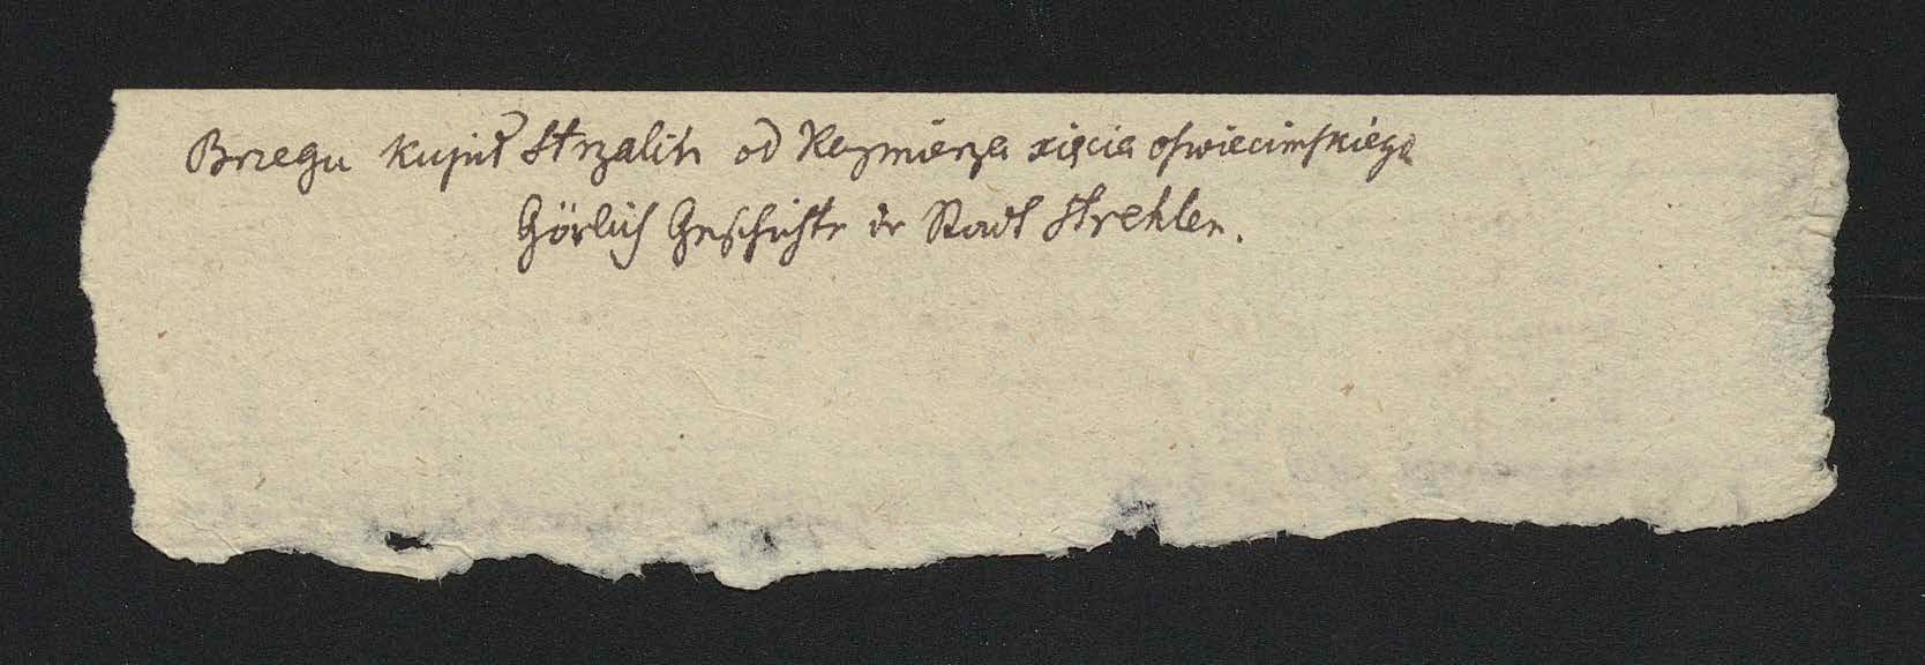 Brzegu kupił Strzalin od Kazmierza xięcia ofwiecimfkiego
Görlich Geschichte der Stadt Strehlen.